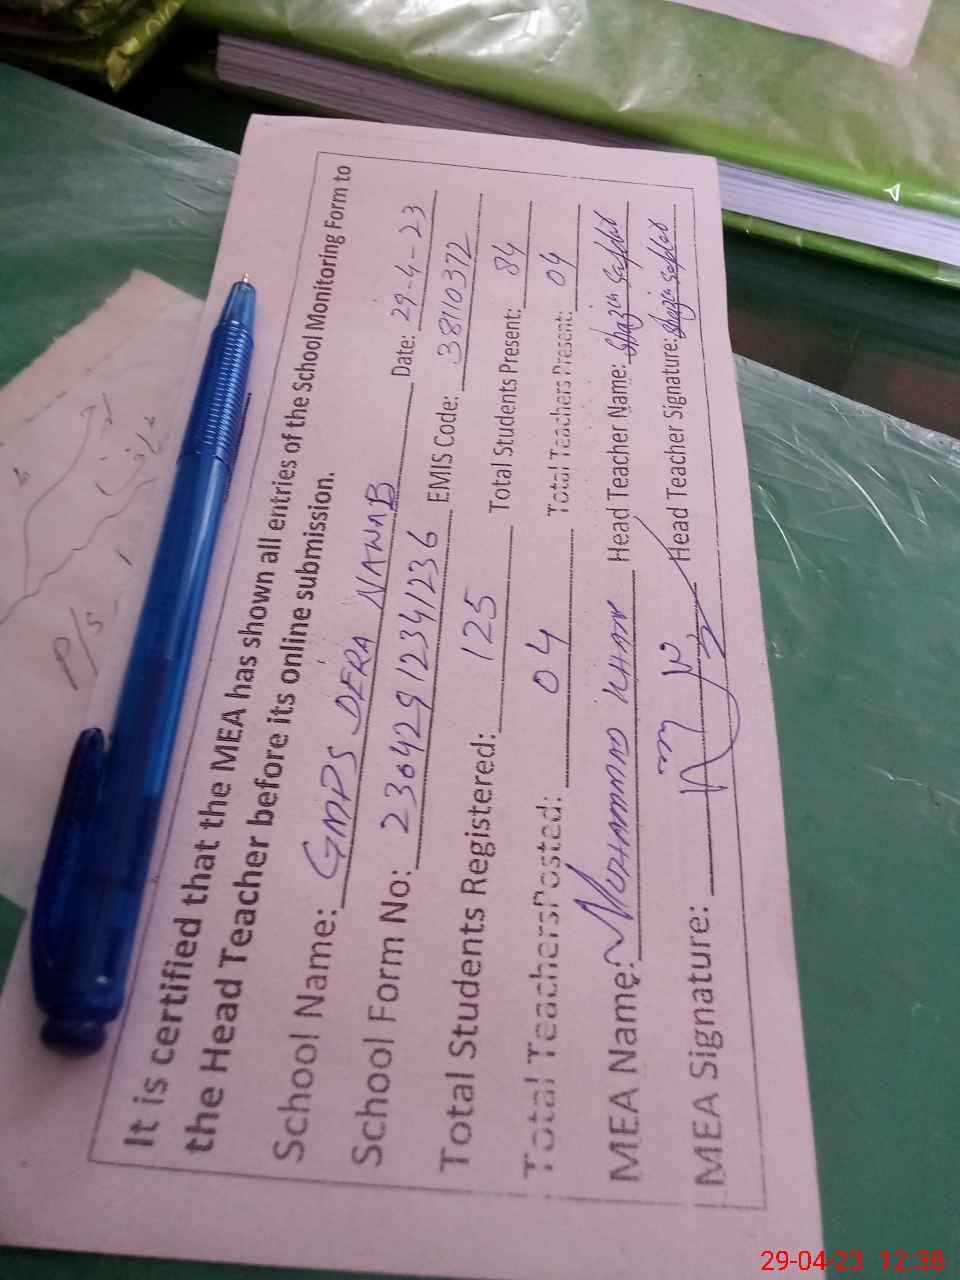 It is certified that the MEA has shown all entries of the School Monitoring Form to
the Head Teacher before its online submission.
School Name: GMPS DERA NAWAB Date: 29-4-23
School Form No: 230429 12341236 EMIS Code: 38110372
Total Students Registered: 125 Total Students Present: 84
Total TeachersPosted: 04 Total Teachers Present: 04
MEA Name: MUHAMMAD KHAN Head Teacher Name: Shazia
MEA Signature: Head Teacher Signature: Shazia
P/S
29-04-23 12:38